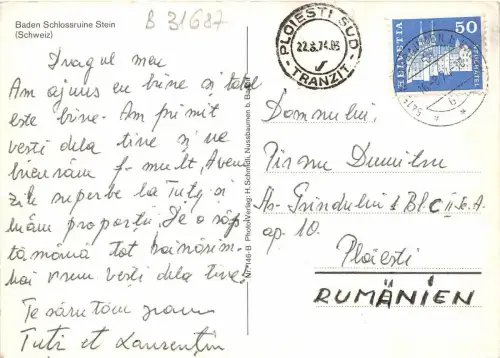 Baden Schlossruine Stein
(Schweiz)
B 31687
Dragul meu
Am ajuns cu bine și totul
este bine. Am primit
vești dela tine și ne
bucurăm f. mult, Avem
zile superbe la Tuți și
tămână tot hoinărim.
Noi vrem vești dela tine
Te sărutăm
Tuți et Laurențiu
Nr. 146-B Photo-Verlag: H. Schmidli, Nussbaumen b. Baden
PLOIESTI SUD
22.8.74.06
TRANZIT
HELVETIA
50
Domnului,
Pirnu Dumitru
As. Grindului 1 Bl. C II Sc. A.
ap. 10.
Ploești
RUMÄNIEN